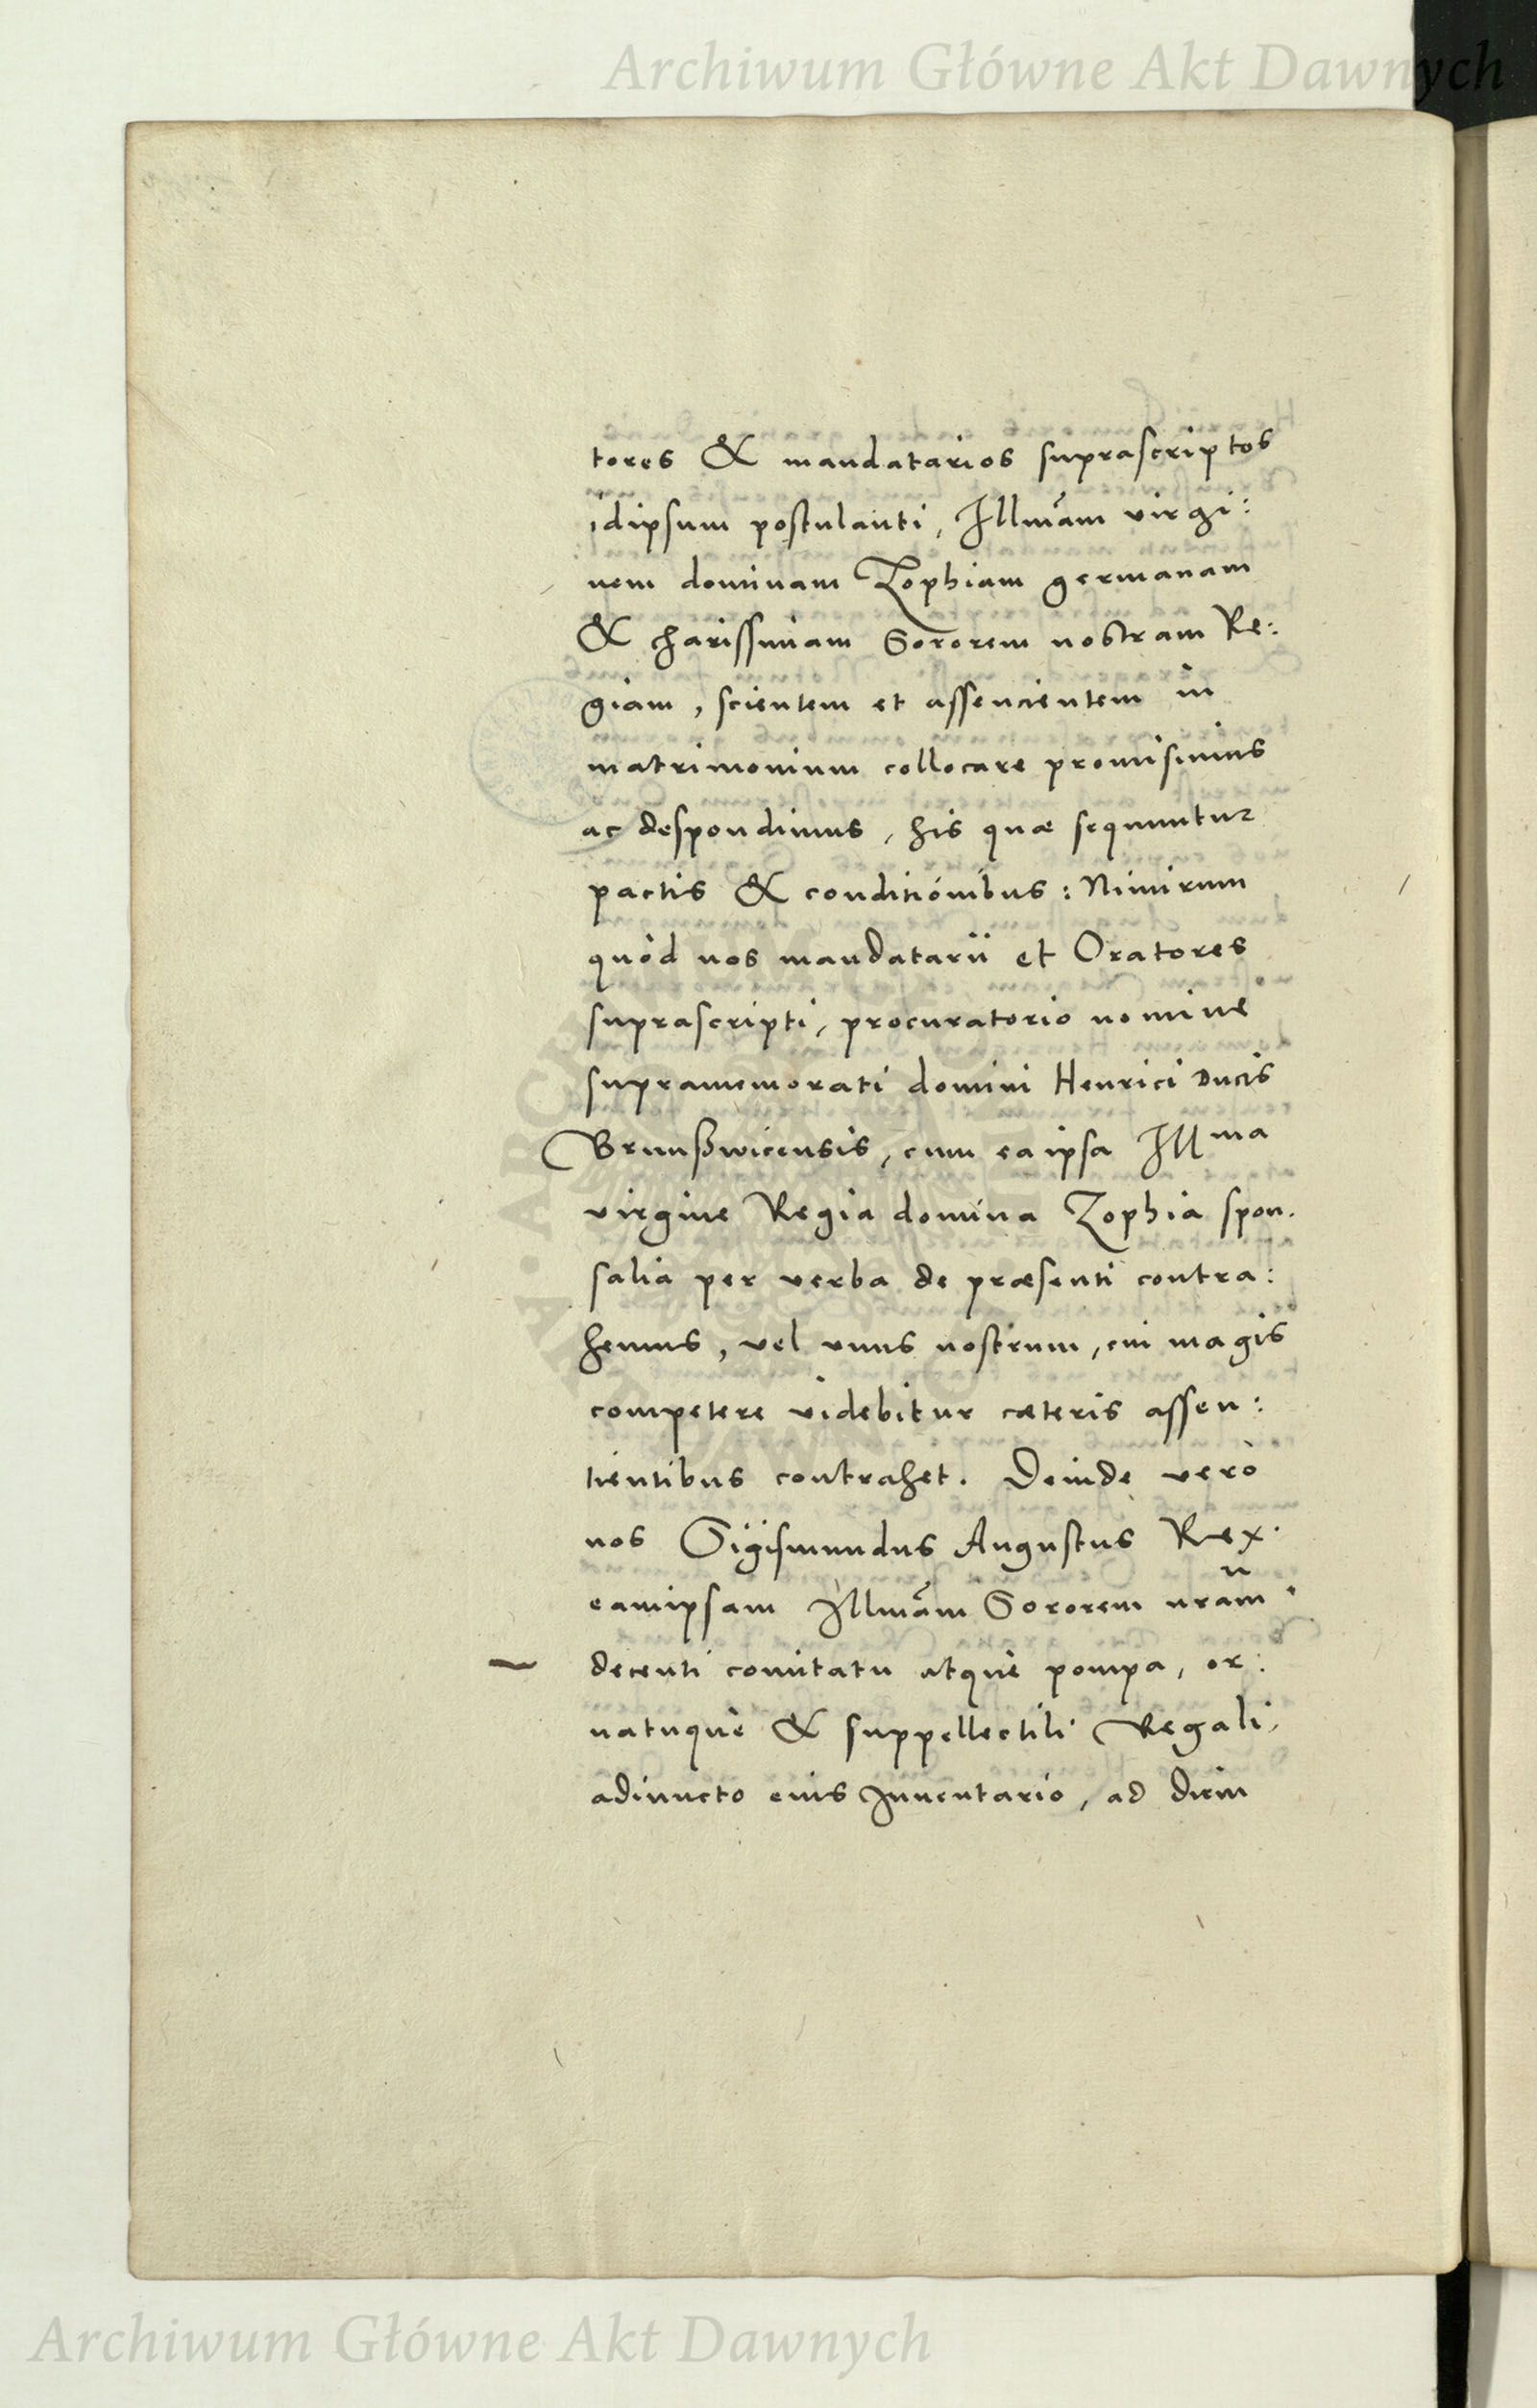 Archiwum Główne Akt Dawnych
tores & mandatarios suprascriptos
idipsum postulanti, Illmãm virgi:
nem dominam Zophiam germanam
& charissimam Sororem nostram Re:
giam, scientem et assencientem in
matrimonium collocare promisimus
ac despondimus, his quæ sequuntur
pactis & conditiónibus: Nimirum
quòd nos mandatarii et Oratores
suprascripti, procuratorio nomine
supramemorati domini Henrici Ducis
Brunßwicensis, cum ea ipsa Illma
virgine Regia domina Zophia spon.
salia per verba de præsenti contra:
hemus, vel unus nostrum, cui magis
competere videbitur cæteris assen:
tientibus contrahet. Deinde verò
nos Sigismundus Augustus Rex.
eamipsam Illmãm Sororem nram
decenti comitatu atque pompa, or:
natuque & suppellectili Regali,
adiuncto eius Inuentario, ad diem
Archiwum Główne Akt Dawnych